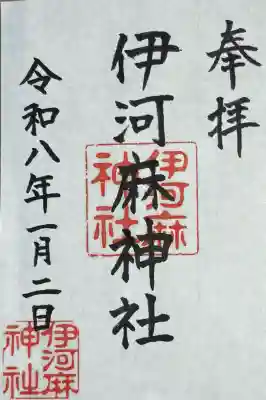 奉拝
伊河麻神社
伊河麻
神社
令和八年一月二日
伊河麻
神社